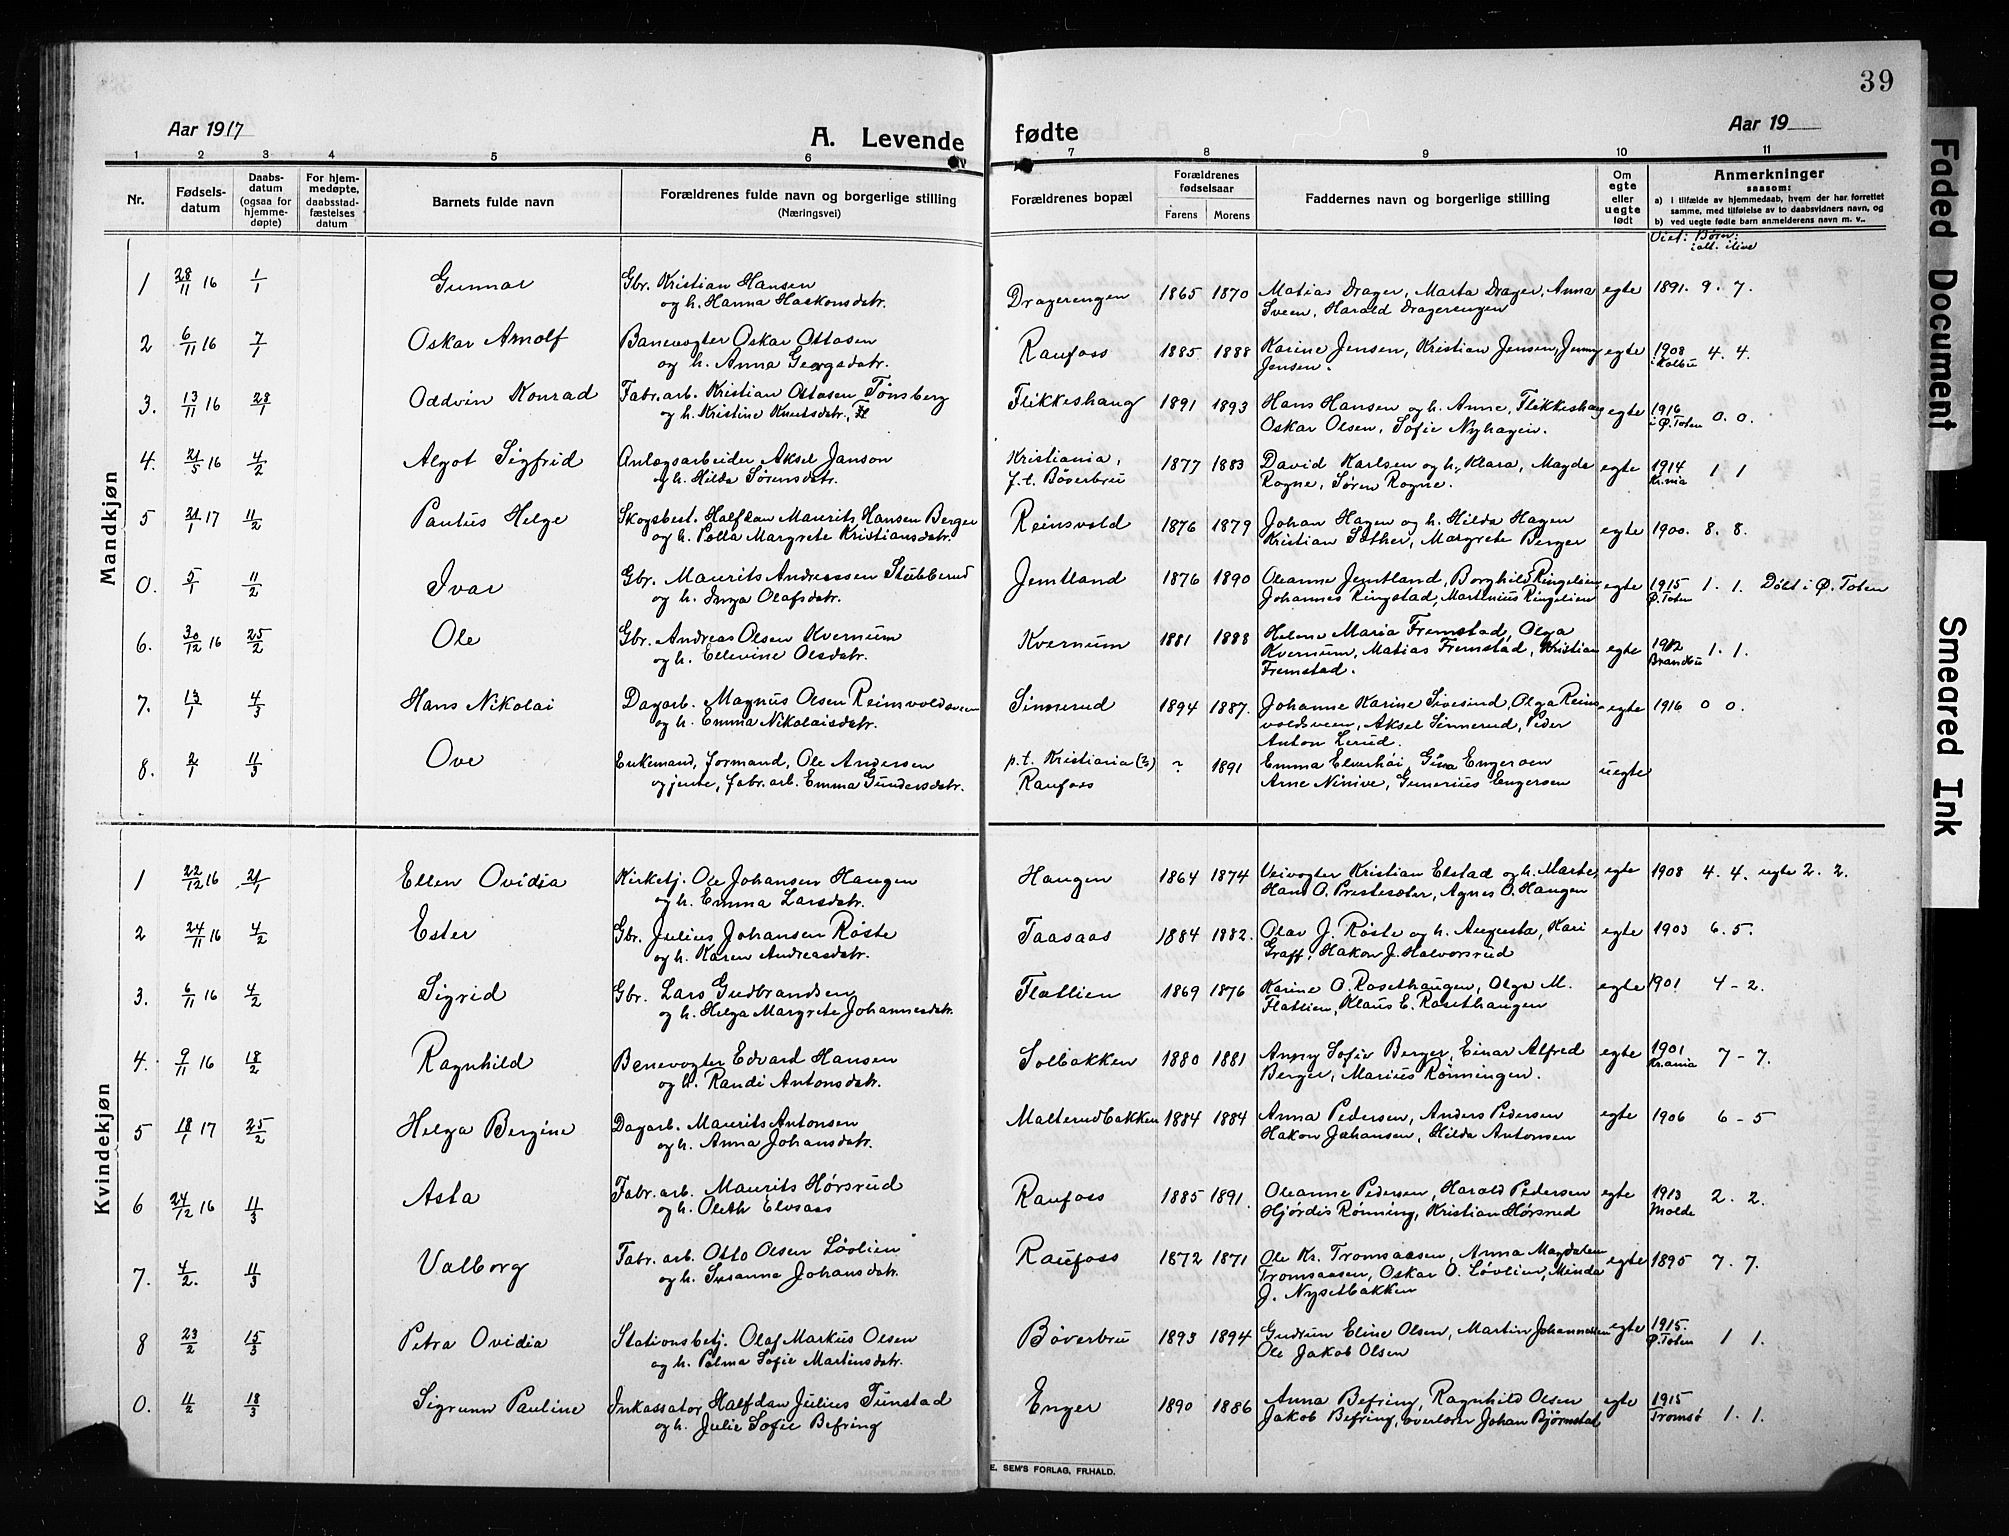 39
Aar 1917
A. Levende
fødte
Aar 19
1 2 3 4 5 6 7 8 9 10 11
Nr.
Fødsels-
datum
Daabs-
datum
(ogsaa for
hjemme-
døpte)
For hjem-
medøpte,
daabsstad-
fæstelses
datum
Barnets fulde navn
Forældrenes fulde navn og borgerlige stilling
(Næringsvei)
Forældrenes bopæl
Forældrenes
fødselsaar
Farens Morens
Faddernes navn og borgerlige stilling
Om
egte
eller
uegte
født
Anmerkninger
saasom:
a) i tilfælde av hjemmedaab, hvem der har forrettet
samme, med tilføielse av to daabsvidners navn, og
b) ved uegte fødte barn anmelderens navn m. v..
Viet: Børn:
ialt. ilive
Mandkjøn
1 28/11 16 1/1 Gunnar Gbr. Kristian Hansen
og h. Hanna Haakonsdatr.
Dragerengen 1865 1870 Matia Drager, Marta Drager, Anna
Sveen, Harald Dragerengen
egte 1891. 9. 7.
2 6/11 16 7/1 Oskar Arnolf Banevogter Oskar Ottosen
og h. Anna Georgsdatr.
Raufoss 1885 1888 Karine Jensen, Kristian Jensen, Jenny
Jensen.
egte 1908
i Kolbu 4. 4.
3. 13/11 16 28/1 Oddvin Konrad Fabr. arb. Kristian Ottosen Tønsberg
og h. Kristine Knutsdatr.
Flikkeshaug 1891 1893 Hans Hansen og h. Anne, Flikkeshaug
Oskar Olsen, Sofie Nyhagen.
egte 1916
i Ø. Toten 0. 0.
4. 21/5 16 4/2 Algot Sigfrid Anlægsarbeider Aksel Janson
og h. Hilda Sørensdatr.
Kristiania,
f. t. Bøverbru 1877 1883 David Karlsen og h. Klara, Magda
Rogne, Søren Rogne.
egte 1914
Kr.nia 1 1
5 21/1 17 11/2 Paulus Helge Skogsbest. Halfdan Maurits Hansen Berger
og h. Polla Margrete Kristiansdatr.
Reinsvold 1876 1879 Johan Hagen og h. Hilda Hagen
Kristian Sether, Margrete Berger
egte 1900. 8. 8.
0. 5/1 11/2 Ivar Gbr. Maurits Andreassen Stubberud
og h. Inga Olafsdatr.
Jemtland 1876 1890 Oleanne Jemtland, Borghild Ringelien,
Johannes Ringstad, Martinius Ringelien
egte 1915
Ø. Toten 1. 1. Døbt i Ø. Toten
6. 30/12 16 25/2 Ole Gbr. Andreas Olsen Kvernum
og h. Ellevine Olsdatr.
Kvernum 1881 1888 Helene Maria Fremstad, Olga
Kvernum, Matias Fremstad, Kristian
Fremstad.
egte 1912
Brandbu 1. 1.
7. 13/1 4/3 Hans Nikolai Dagarb. Magnus Olsen Reinvoldsveen
og h. Emma Nikolaisdatr.
Sinnerud 1894 1887. Johanne Karine Sivesind, Olga Rein-
voldsveen, Aksel Sinnerud, Peder
Anton Lerud.
egte 1916 0 0.
8. 2/1 11/3 Ove Enkemand, formand, Ole Andersen
og jente, fabr. arb. Emma Gundersdatr.
p.t. Kristiania (?)
Raufoss ? 1891 Emma Elverhøi, Gina Engersen
Arne Ninive, Gunerius Engersen
uegte
Kvindekjøn
1 22/12 16 21/1 Ellen Ovidia Kirketj. Ole Johansen Haugen
og h. Emma Larsdatr.
Haugen 1864 1874 Veivogter Kristian Elstad og h. Marte,
Hans O. Prestesæter, Agnes O. Haugen
egte 1908 4. 4. uegte 2. 2.
2 24/11 16 4/2 Ester Gbr. Julius Johansen Røste
og h. Karen Andreasdatr.
Taasaas 1884 1882. Olav J. Røste og h. Augusta, Kari
Graff, Hakon J. Halvorsrud
egte 1903 6. 5.
3. 6/11 16 4/2 Sigrid Gbr. Lars Gudbrandsen
og h. Helga Margrete Johannesdatr.
Flatlien 1869 1876 Karine O. Rosethaugen, Olga M.
Flatlien, Klaus E. Rosethaugen
egte 1901 4 - 2.
4. 9/11 16 18/2 Ragnhild Banevogter Edvard Hansen
og h. Randi Antonsdatr.
Solbakken 1880 1881 Anny Sofie Berger, Einar Alfred
Berger, Marius Rønningen.
egte 1901
Kr.ania 7 - 7.
5 18/1 17 25/2 Helga Bergine Dagarb. Maurits Antonsen
og h. Anna Johansdatr.
Malterudbakken 1884 1884 Anna Pedersen, Anders Pedersen
Hakon Johansen, Hilda Antonsen
egte 1906 6 - 5
6 24/12 16 11/3 Asta Fabr. arb. Maurits Hørsrud
og h. Oleth Elvsaas
Raufoss 1885 1891. Oleanne Pedersen, Harald Pedersen
Hjørdis Rønning, Kristian Hørsrud
egte 1913
Molde 2. 2.
7. 4/2. 11/3 Valborg Fabr. arb. Otto Olsen Løvlien
og h. Susanna Johansdatr.
Raufoss 1872 1871 Ole Kr. Tromsaasen, Anna Magdalen
Tromsaasen, Oskar O. Løvlien, Minda
J. Nysetbakken
egte 1895 7. 7.
8 23/2 15/3 Petra Ovidia Stationsbetj. Olaf Markus Olsen
og h. Palma Sofie Martinsdatr.
Bøverbru 1893 1894 Gudrun Eline Olsen, Martin Johannessen
Ole Jakob Olsen
egte 1915.
Ø. Toten 1 1.
0. 4/2 18/3 Sigrunn Pauline Inkassator Halfdan Julius Tunstad
og h. Julie Sofie Befring
Enger 1890 1886 Anna Befring, Ragnhild Olsen
Jakob Befring, overlærer Johan Bjørnstad
egte 1915
Tromsø 1. 1.
E. SEM'S FORLAG, FR.HALD.
Faded Document
Smeared Ink